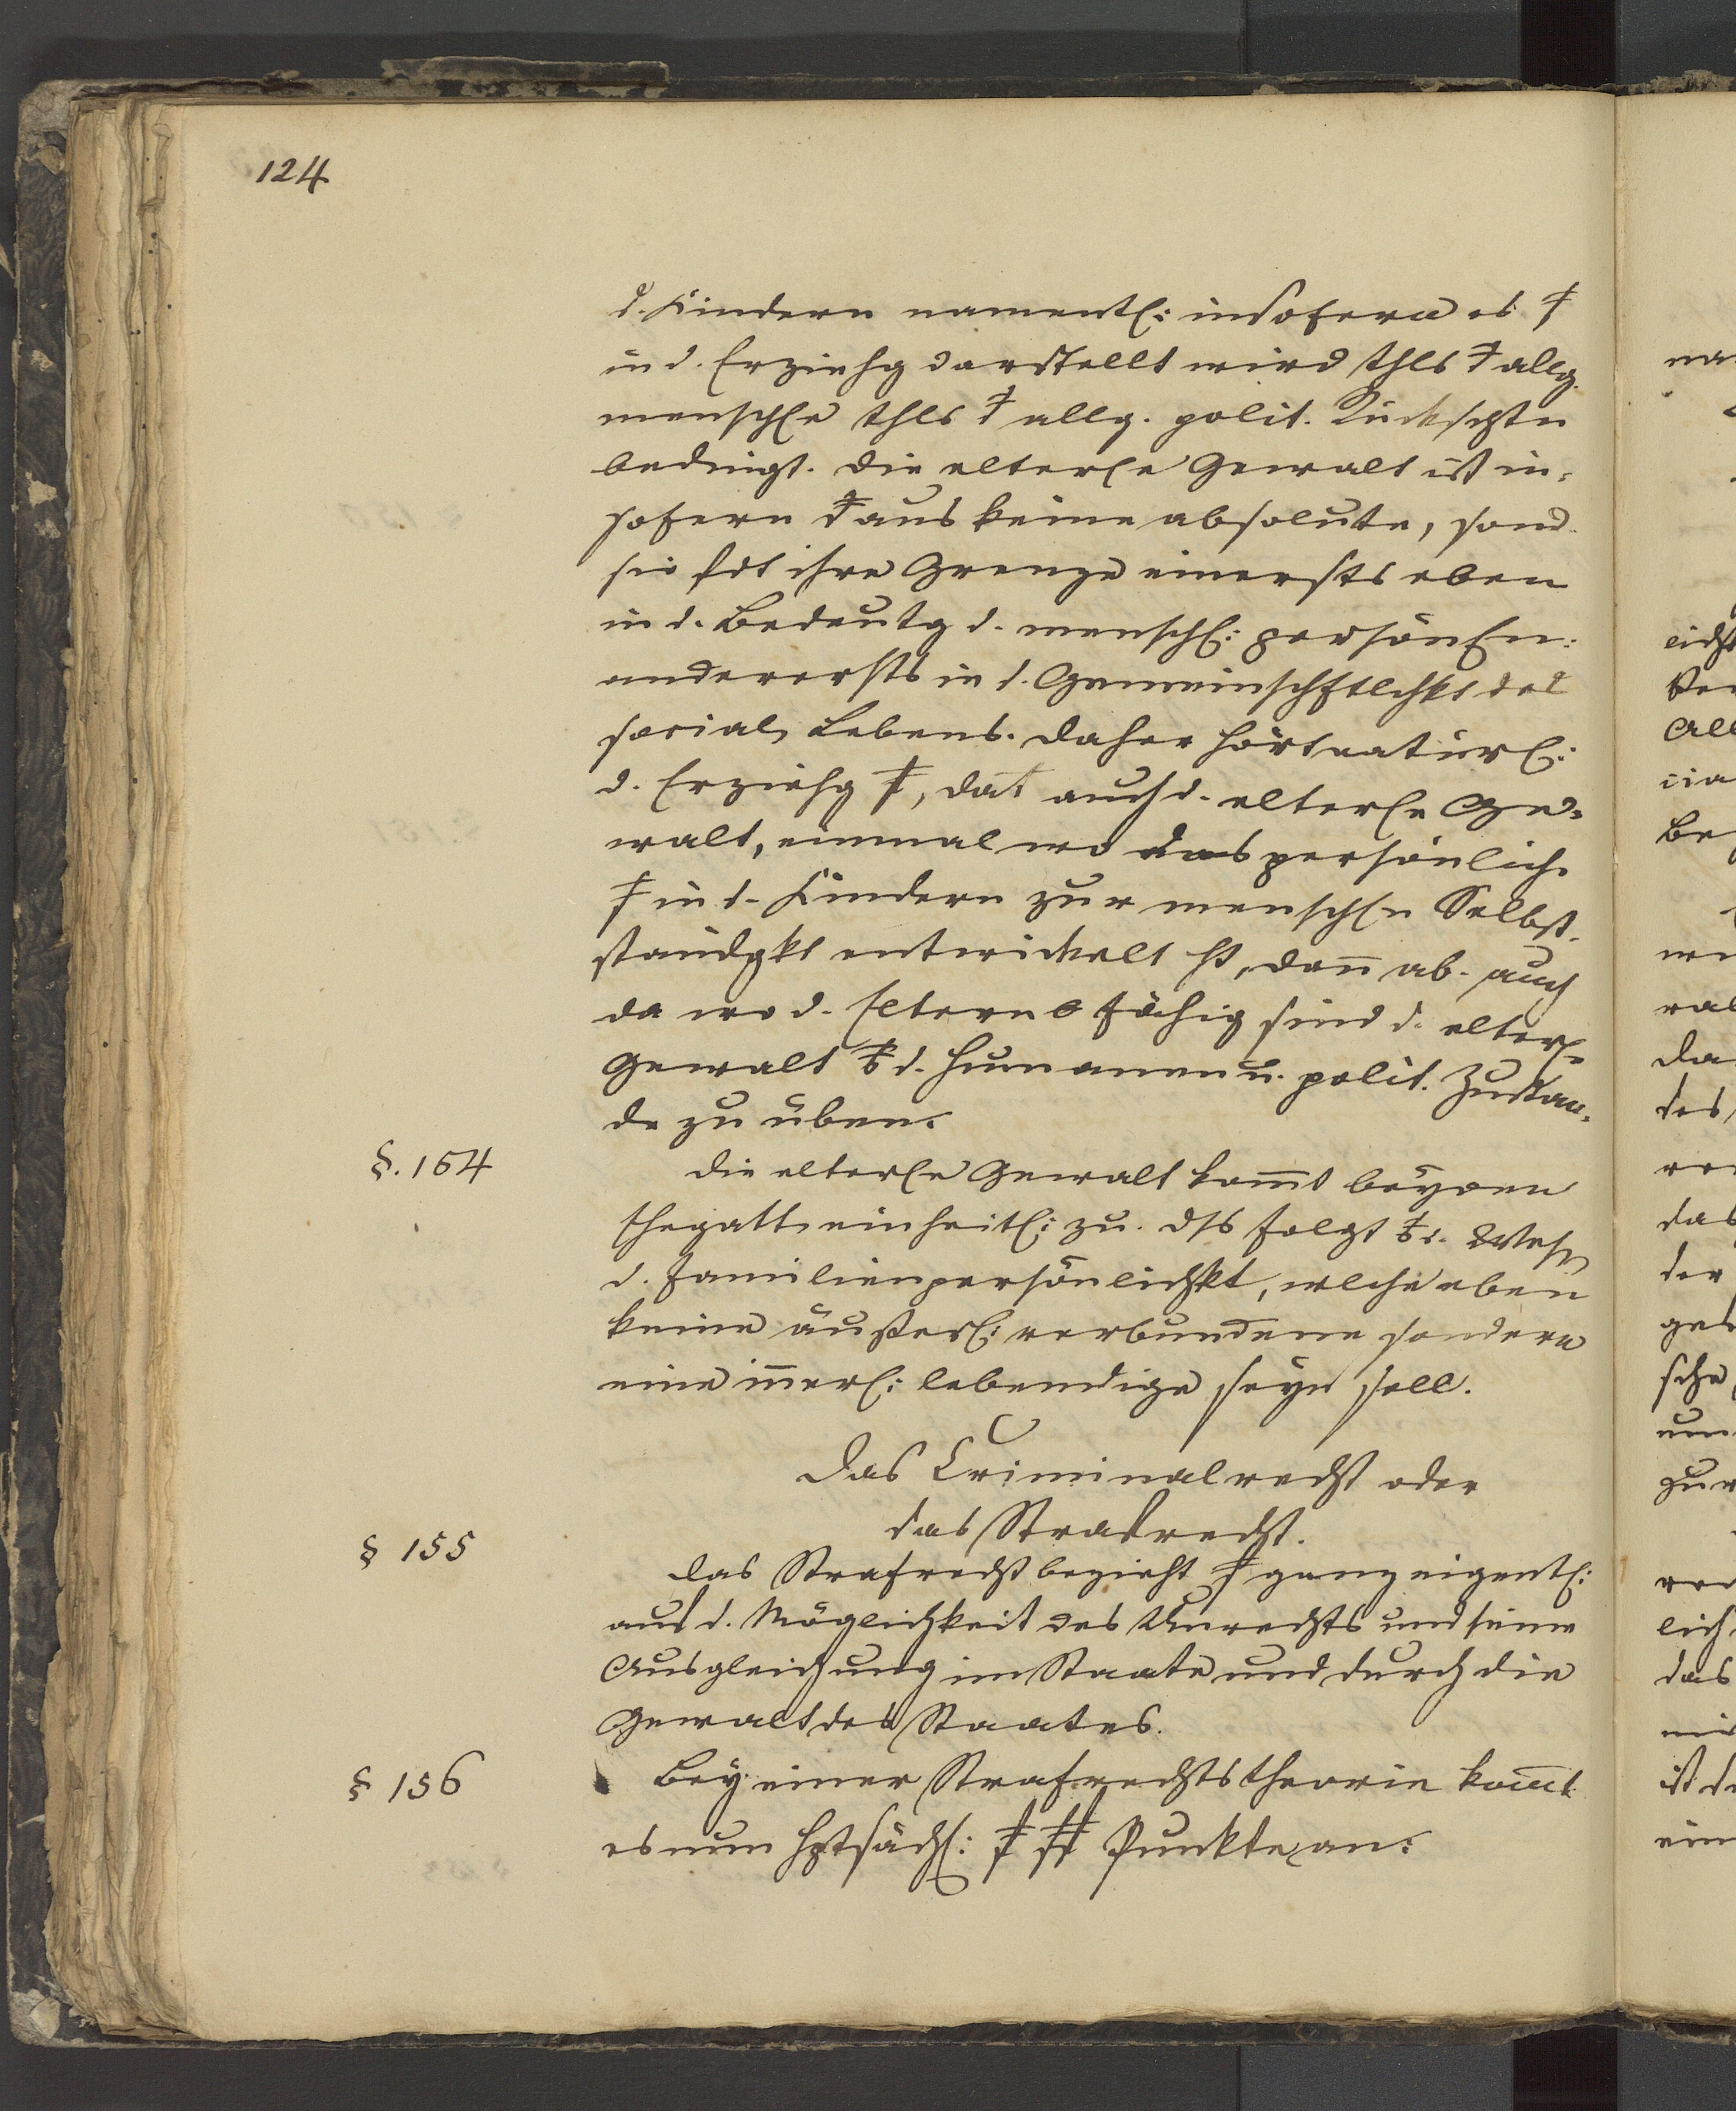 124
d. Kindern namentl: insofern es
in d. Erziehg darstellt wird thls allg.
menschle thls allg. polit. Rücksichtn
bedingt. Die elterle Gewalt ist in-
sofern aus keine absolute, sond
sie fdt ihre Grenze einersts eben
in d. Bedeutg d. menschl: persönln:
anderersts in d. Gemeinschftlchkt des
social. Lebens. Daher hört natürl:
d. Erziehg, dat auch d. elterle Ge-
walt, einmal wo das persönliche
in d. Kindern zur menschln Selbst-
ständgkt entwickelt ist, dann ab. auch
da wo d. Eltern fähig sind d. elterle
Gewalt d. humanen u. polit. Zustän-
de zu üben.
§. 154
Die elterle Gewalt kommt beyden
Ehegatt. einheitl: zu. Dss folgt d. Wesn
d. Familienpersönlichkt, welche eben
keine äußerl: verbundene sondern
eine innerl: lebendige seyn soll.
Das Criminalrecht oder
das Strafrecht.
§ 155
Das Strafrecht bezieht ganz eigentl:
auf d. Möglichkeit des Unrechts und seine
Ausgleichung im Staate und durch die
Gewalt des Staates.
§ 156
Bey einer Strafrechtstheorie kommt
es nun hptsächl: Punkte an: